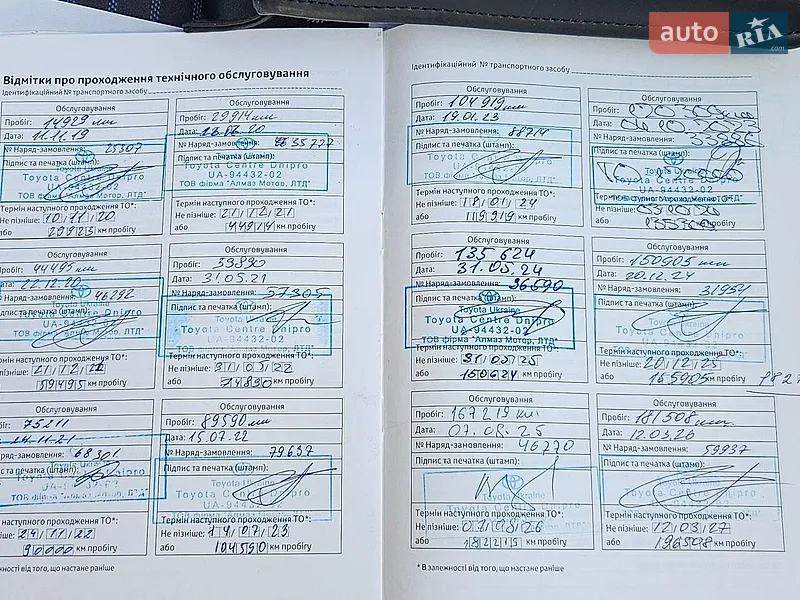 auto RIA .com
Відмітки про проходження технічного обслуговування
Ідентифікаційний № транспортного засобу
Обслуговування
14929 км
Дата: 11.11.19
№ Наряд-замовлення: 25307
Підпис та печатка (штамп):
Toyota Centre Dnipro
UA-94432-02
ТОВ фірма "Алмаз Мотор, ЛТД"
Термін наступного проходження ТО*:
Не пізніше: 10.11.20
або 29929 км пробігу
Обслуговування
Пробіг: 29914 км
Дата:
№ Наряд-замовлення:
Підпис та печатка (штамп):
Toyota Centre Dnipro
UA-94432-02
ТОВ фірма "Алмаз Мотор, ЛТД"
Термін наступного проходження ТО*:
Не пізніше: 21.12.21
або 44914 км пробігу
Обслуговування
44495 км
22.12.20
Наряд-замовлення: 46292
Підпис та печатка (штамп):
Toyota Centre Dnipro
UA-94432-02
Термін наступного проходження ТО*:
Не пізніше:
або 59495 км пробігу
Обслуговування
Пробіг: 59890
Дата: 31.05.21
№ Наряд-замовлення: 57305
Підпис та печатка (штамп):
Toyota Centre Dnipro
UA-94432-02
Термін наступного проходження ТО*:
Не пізніше: 31.05.22
або 74890 км пробігу
Обслуговування
75211
Наряд-замовлення: 68301
Підпис та печатка (штамп):
Термін наступного проходження ТО*:
пізніше: 24.11.22
90000 км пробігу
Обслуговування
Пробіг: 89590 км
Дата: 15.07.22
№ Наряд-замовлення: 79637
Підпис та печатка (штамп):
Toyota Ukraine
Toyota Centre Dnipro
UA-94432-02
Термін наступного проходження ТО*:
Не пізніше: 14.07.23
або 104590 км пробігу
залежності від того, що настане раніше
Ідентифікаційний № транспортного засобу
Обслуговування
Пробіг: 104919 км
Дата: 19.01.23
№ Наряд-замовлення: 88714
Підпис та печатка (штамп):
Toyota Centre Dnipro
UA-94432-02
Термін наступного проходження ТО*:
Не пізніше: 18.01.24
або 119919 км пробігу
Обслуговування
Пробіг:
Дата:
№ Наряд-замовлення:
Підпис та печатка (штамп):
UA-94432-02
Не пізніше:
або км пробігу
Обслуговування
Пробіг: 135 624
Дата: 31.05.24
№ Наряд-замовлення: 26590
Підпис та печатка (штамп):
Toyota Ukraine
Toyota Centre Dnipro
UA-94432-02
ТОВ фірма "Алмаз Мотор, ЛТД"
Термін наступного проходження ТО*:
Не пізніше: 31.05.25
або 150624 км пробігу
Обслуговування
Пробіг: 150905 км
Дата: 20.12.24
№ Наряд-замовлення: 31954
Підпис та печатка (штамп):
Toyota Centre Dnipro
UA-94432-02
Термін наступного проходження ТО*:
Не пізніше: 20.12.25
або 165905 км пробігу
Обслуговування
Пробіг: 167219 км
Дата: 07.08.25
№ Наряд-замовлення: 46770
Підпис та печатка (штамп):
Toyota Ukraine
Toyota Centre Dnipro
Термін наступного проходження ТО*:
Не пізніше: 07.08.26
або 182219 км пробігу
Обслуговування
Пробіг: 181508 км
Дата: 12.03.26
№ Наряд-замовлення: 59937
Підпис та печатка (штамп):
Toyota Ukraine
Toyota Centre Dnipro
Термін наступного проходження ТО*:
Не пізніше: 12.03.27
або 196508 км пробігу
* В залежності від того, що настане раніше